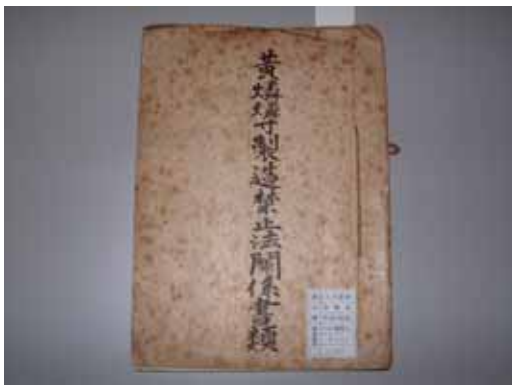 黄燐燐寸製造禁止法関係書類